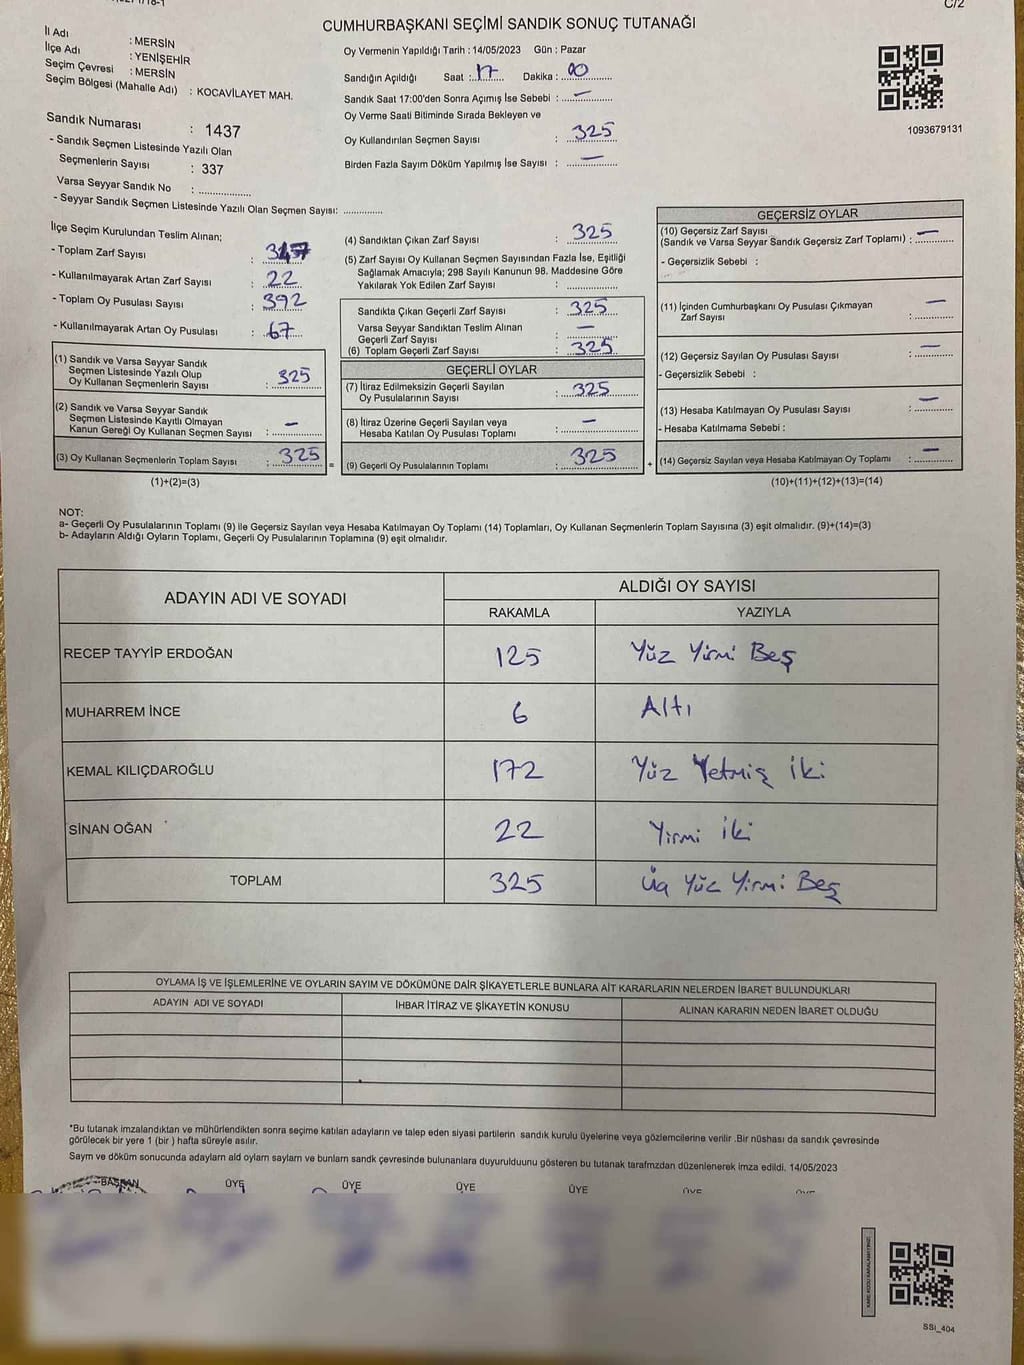 C/2
CUMHURBAŞKANI SEÇİMİ SANDIK SONUÇ TUTANAĞI
İl Adı : MERSİN
İlçe Adı : YENİŞEHİR
Seçim Çevresi : MERSİN
Seçim Bölgesi (Mahalle Adı) : KOCAVİLAYET MAH.
Sandık Numarası : 1437
- Sandık Seçmen Listesinde Yazılı Olan
Seçmenlerin Sayısı : 337
Varsa Seyyar Sandık No : ..............
- Seyyar Sandık Seçmen Listesinde Yazılı Olan Seçmen Sayısı: ..............
Oy Vermenin Yapıldığı Tarih : 14/05/2023 Gün : Pazar
Sandığın Açıldığı Saat : 17 Dakika : 00
Sandık Saat 17:00'den Sonra Açımış İse Sebebi : —
Oy Verme Saati Bitiminde Sırada Bekleyen ve
Oy Kullandırılan Seçmen Sayısı : 325
Birden Fazla Sayım Döküm Yapılmış İse Sayısı : —
1093679131
İlçe Seçim Kurulundan Teslim Alınan;
- Toplam Zarf Sayısı :
- Kullanılmayarak Artan Zarf Sayısı : 22
- Toplam Oy Pusulası Sayısı : 392
- Kullanılmayarak Artan Oy Pusulası : 67
(1) Sandık ve Varsa Seyyar Sandık
Seçmen Listesinde Yazılı Olup
Oy Kullanan Seçmenlerin Sayısı : 325
(2) Sandık ve Varsa Seyyar Sandık
Seçmen Listesinde Kayıtlı Olmayan
Kanun Gereği Oy Kullanan Seçmen Sayısı : —
(3) Oy Kullanan Seçmenlerin Toplam Sayısı : 325
(1)+(2)=(3)
(4) Sandıktan Çıkan Zarf Sayısı : 325
(5) Zarf Sayısı Oy Kullanan Seçmen Sayısından Fazla İse, Eşitliği
Sağlamak Amacıyla; 298 Sayılı Kanunun 98. Maddesine Göre
Yakılarak Yok Edilen Zarf Sayısı : ..............
Sandıkta Çıkan Geçerli Zarf Sayısı : 325
Varsa Seyyar Sandıktan Teslim Alınan
Geçerli Zarf Sayısı : —
(6) Toplam Geçerli Zarf Sayısı : 325
GEÇERLİ OYLAR
(7) İtiraz Edilmeksizin Geçerli Sayılan
Oy Pusulalarının Sayısı : 325
(8) İtiraz Üzerine Geçerli Sayılan veya
Hesaba Katılan Oy Pusulası Toplamı : —
= (9) Geçerli Oy Pusulalarının Toplamı : 325
GEÇERSİZ OYLAR
(10) Geçersiz Zarf Sayısı
(Sandık ve Varsa Seyyar Sandık Geçersiz Zarf Toplamı) : —
- Geçersizlik Sebebi :
(11) İçinden Cumhurbaşkanı Oy Pusulası Çıkmayan
Zarf Sayısı : —
(12) Geçersiz Sayılan Oy Pusulası Sayısı : —
- Geçersizlik Sebebi :
(13) Hesaba Katılmayan Oy Pusulası Sayısı : —
- Hesaba Katılmama Sebebi :
+ (14) Geçersiz Sayılan veya Hesaba Katılmayan Oy Toplamı : —
(10)+(11)+(12)+(13)=(14)
NOT:
a- Geçerli Oy Pusulalarının Toplamı (9) ile Geçersiz Sayılan veya Hesaba Katılmayan Oy Toplamı (14) Toplamları, Oy Kullanan Seçmenlerin Toplam Sayısına (3) eşit olmalıdır. (9)+(14)=(3)
b- Adayların Aldığı Oyların Toplamı, Geçerli Oy Pusulalarının Toplamına (9) eşit olmalıdır.
ADAYIN ADI VE SOYADI ALDIĞI OY SAYISI
RAKAMLA YAZIYLA
RECEP TAYYİP ERDOĞAN 125 Yüz Yirmi Beş
MUHARREM İNCE 6 Altı
KEMAL KILIÇDAROĞLU 172 Yüz Yetmiş İki
SİNAN OĞAN 22 Yirmi İki
TOPLAM 325 Üç Yüz Yirmi Beş
OYLAMA İŞ VE İŞLEMLERİNE VE OYLARIN SAYIM VE DÖKÜMÜNE DAİR ŞİKAYETLERLE BUNLARA AİT KARARLARIN NELERDEN İBARET BULUNDUKLARI
ADAYIN ADI VE SOYADI İHBAR İTİRAZ VE ŞİKAYETİN KONUSU ALINAN KARARIN NEDEN İBARET OLDUĞU
*Bu tutanak imzalandıktan ve mühürlendikten sonra seçime katılan adayların ve talep eden siyasi partilerin sandık kurulu üyelerine veya gözlemcilerine verilir .Bir nüshası da sandık çevresinde
görülecek bir yere 1 (bir ) hafta süreyle asılır.
Sayım ve döküm sonucunda adayların ald oyların sayların ve bunların sandk çevresinde bulunanlara duyurulduunu gösteren bu tutanak tarafmzdan düzenlenerek imza edildi. 14/05/2023
BAŞKAN ÜYE ÜYE ÜYE ÜYE ÜYE ÜYE
SSİ_404